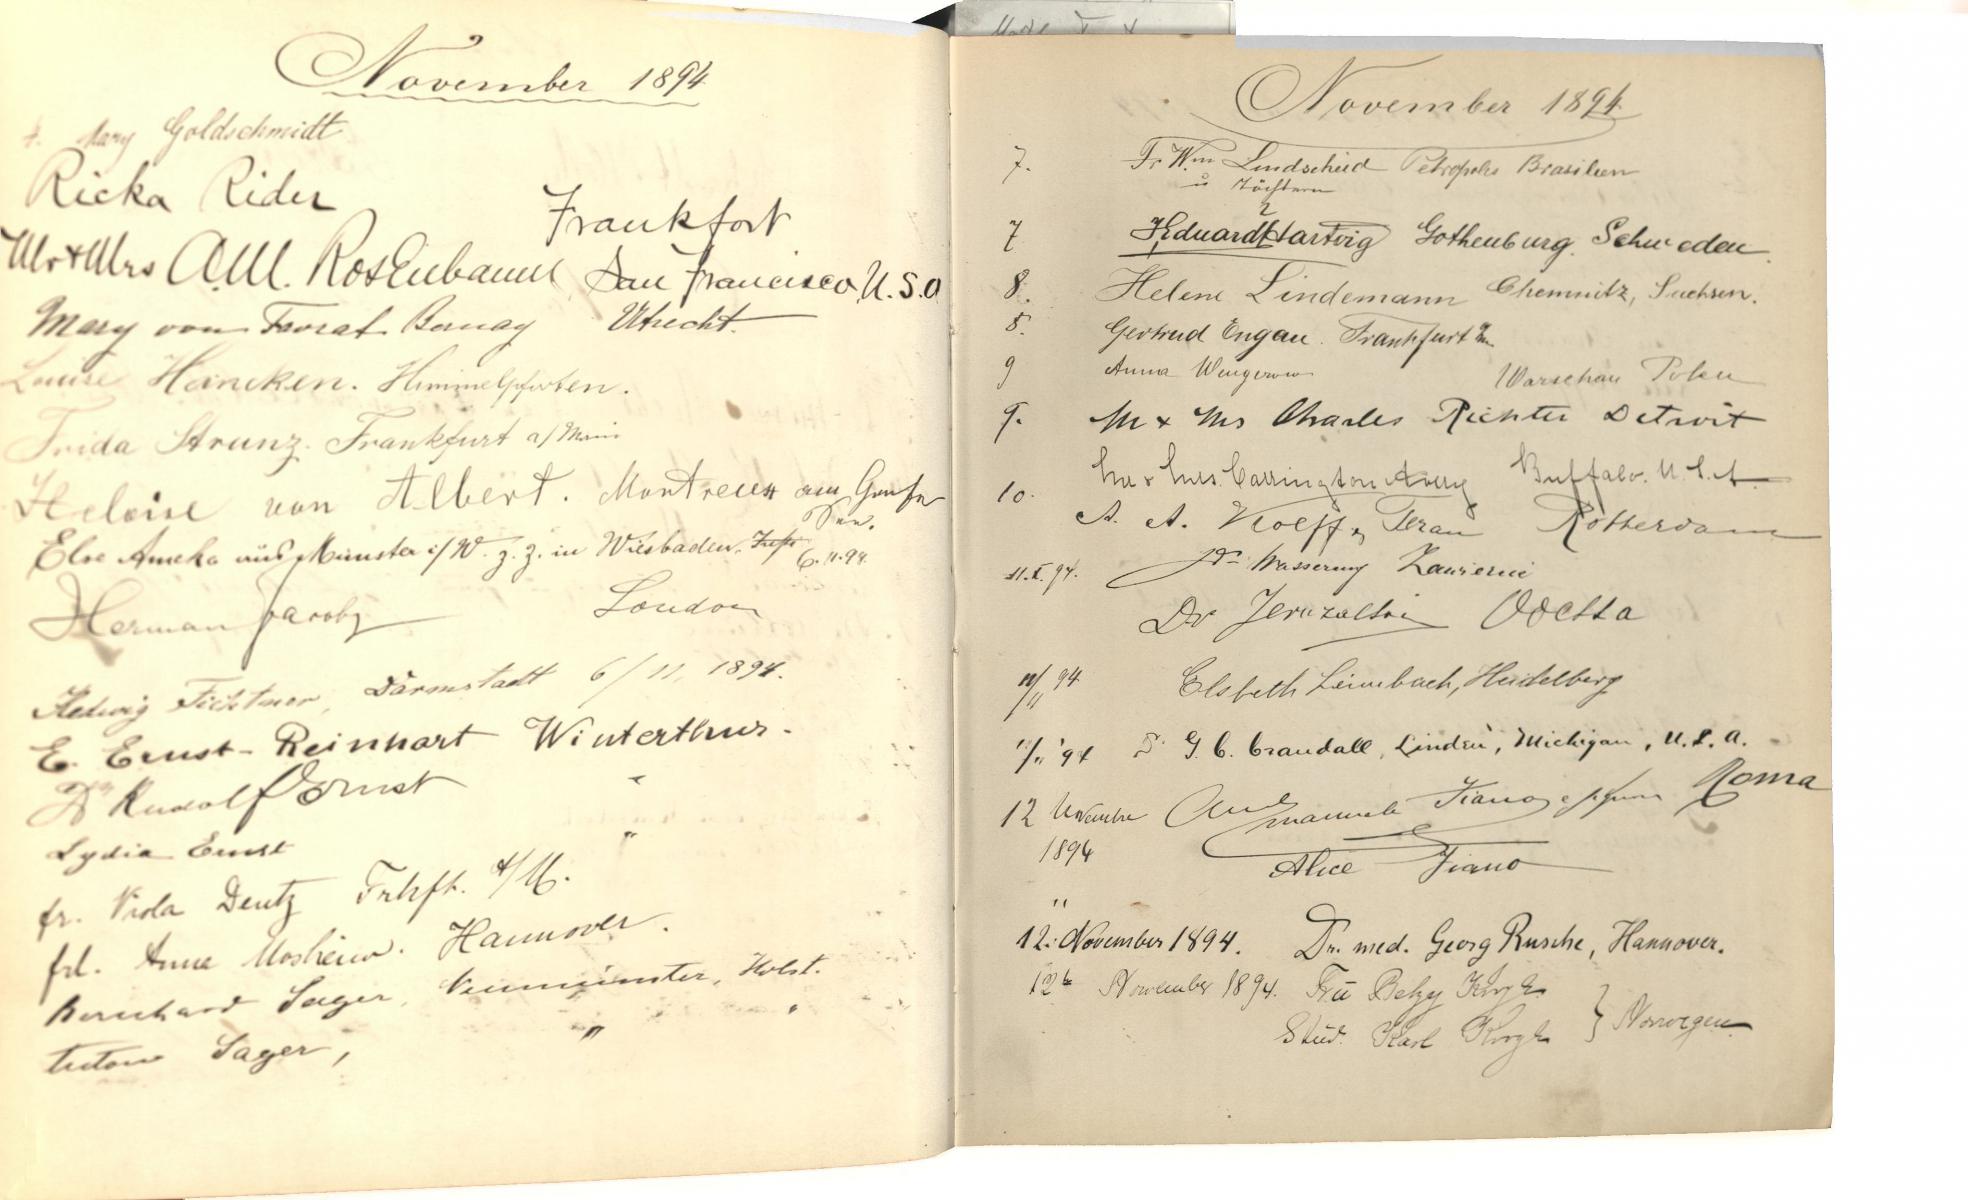 November 1894
Mary Goldschmidt
Ricka Rider Frankfort
Mr & Mrs A. M. Rosenbaum San Francisco, U.S.A
Mary von Bernay Utrecht.
Louise Heincken. Himmelpforten.
Frida Strunz. Frankfurt a/Main
Heloise von Albert. Montreux am Genfer
See.
Else Ameka aus Münster i/W. z. Z. in Wiesbaden.
6.11.94.
Herman Jacoby London
Hedwig Fichtner, Darmstadt 6/11. 1894.
E. Ernst-Reinhart Winterthur.
Dr Rudolf Ernst "
Lydia Ernst "
fr. Viola Deutz Frkft. a/M.
frl. Anna Hannover.
Bernhard Sager, Neumünster, Holst.
Sager, " "
November 1894.
7. Fr. Wm Lindscheid Petropolis Brasilien
u Töchtern
2
7 Eduard Hartvig Gothenburg. Schweden.
8. Helene Lindemann Chemnitz, Sachsen.
8. Gertrud Engau. Frankfurt a/m.
9 Anna Wengerow Warschau Polen
9. Mr & Mrs Charles Richter Detroit
10. Mr & Mrs. Carrington Avery Buffalo. U.S.A.
A. A. Kolff & Frau Rotterdam
11.X.94. Dr
Dr Odessa
11/11 94 Elsbeth Leimbach, Heidelberg
11/11 '94 Dr G. C. Crandall, Linden, Michigan, U.S.A.
12 Novembre Emanuele Fiano Roma
1894 Alice Fiano
"
12. November 1894. Dr. med. Georg Rusche, Hannover.
12te November 1894. Betzy
Stud. Karl } Norwegen